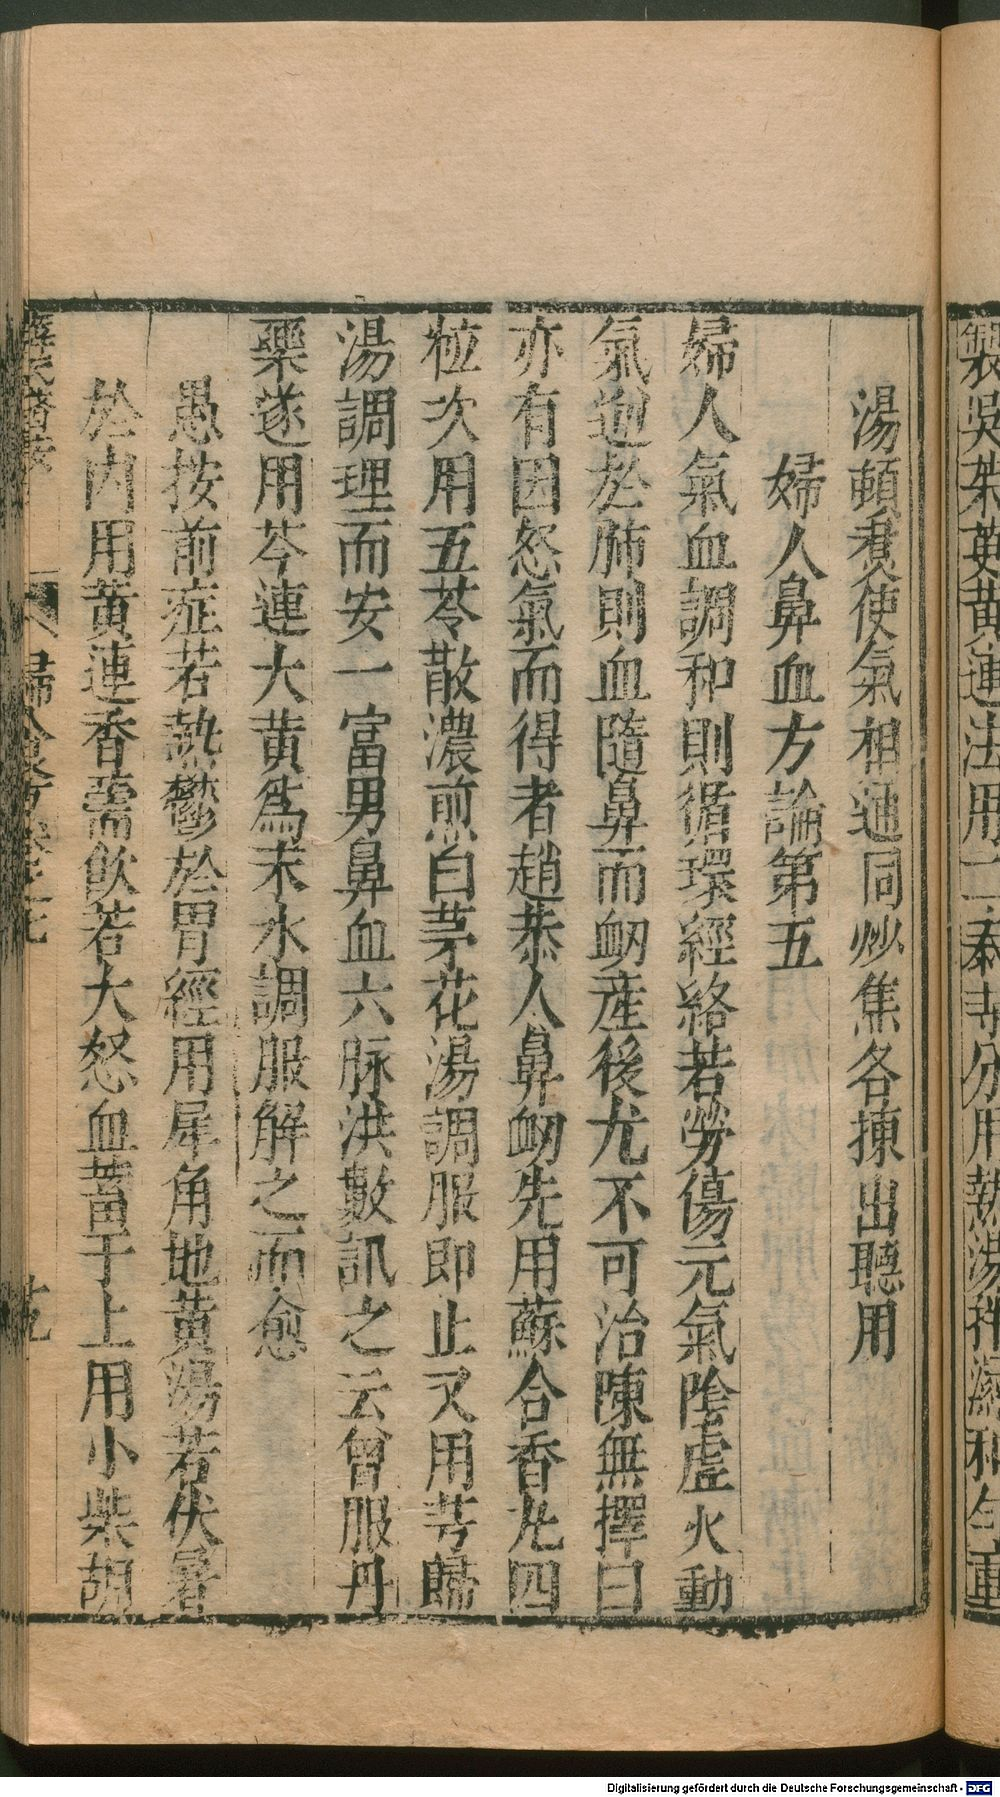 製吳茱萸黃連法用二藥等分用熱湯拌濕和勻重
湯頓煑使氣相通同炒焦各揀出聽用
婦人鼻血方論第五
婦人氣血調和則循環經絡若勞傷元氣陰虛火動
氣迎於肺則血隨鼻而衂産後尤不可治陳無擇曰
亦有因怒氣而得者趙恭人鼻衂先用蘇合香丸四
粒次用五苓散濃煎白茅花湯調服即止又用芎歸
湯調理而安一富男鼻血六脉洪數訊之云曾服丹
藥遂用芩連大黃爲末水調服解之而愈
愚按前症若熱鬱於胃經用犀角地黃湯若伏暑
於内用黃連香薷飲若大怒血蓄于上用小柴胡
薛氏醫案 婦人良方卷之七
Digitalisierung gefördert durch die Deutsche Forschungsgemeinschaft - DFG